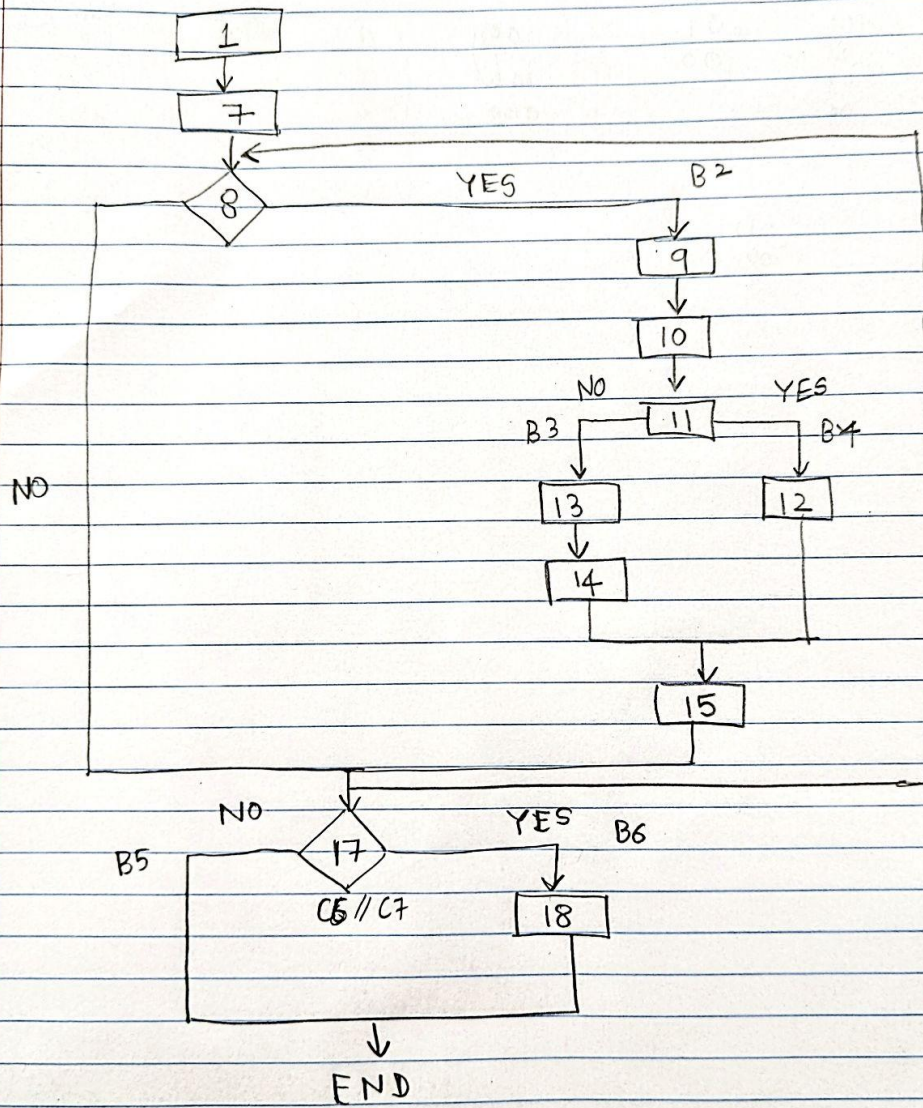 1
7
8
YES
B2
9
10
NO
YES
11
B3
B4
NO
13
12
14
15
NO
YES
B6
B5
17
C6 // C7
18
END